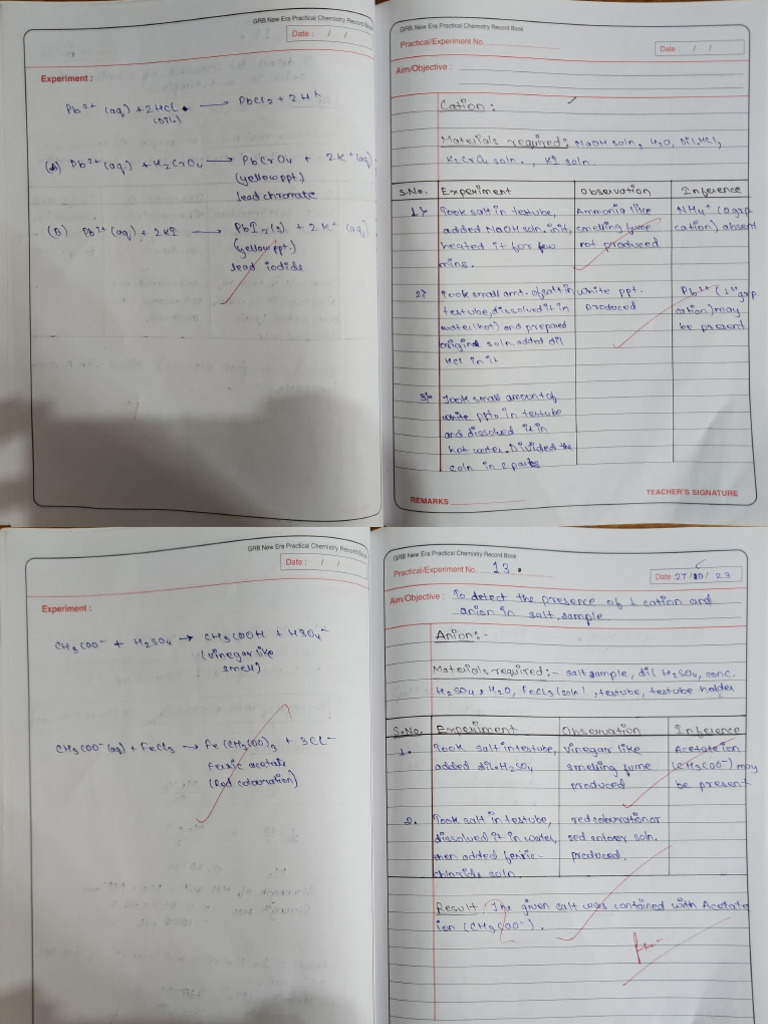 GRB New Era Practical Chemistry Record Book
Date : / /
Experiment :
Pb²⁺ (aq) + 2HCl → PbCl₂ + 2H⁺
(dil)
(A) Pb²⁺(aq) + K₂CrO₄ → PbCrO₄ + 2K⁺(aq).
(yellow ppt.)
lead chromate
(B) Pb²⁺(aq) + 2KI → PbI₂(s) + 2K⁺ (aq)
(yellow ppt.)
lead iodide
GRB New Era Practical Chemistry Record Book
Practical/Experiment No.
Date : / /
Aim/Objective :
Cation :
Materials required: NaOH soln, H₂O, Dil.HCl,
K₂CrO₄ soln., KI soln.
S.No. Experiment Observation Inference
1) Took salt in testube, Ammonia like NH₄⁺ (0 grp
added NaOH soln. init, smelling fume cation) absent
heated it for few not produced
mins.
2) Took small amt. of salt in white ppt. Pb²⁺ (1st grp.
testube, dissolved it in produced cation) may
water (hot) and prepared be present
original soln. added dil
HCl in it
3) Took small amount of
white ppt. in testube
and dissolved it in
hot water. Divided the
soln in 2 parts
REMARKS
TEACHER'S SIGNATURE
GRB New Era Practical Chemistry Record Book
Date : / /
Experiment :
CH₃COO⁻ + H₂SO₄ → CH₃COOH + HSO₄⁻
(vinegar like
smell)
CH₃COO⁻(aq) + FeCl₃ → Fe(CH₃COO)₃ + 3Cl⁻
ferric acetate
(Red colouration)
GRB New Era Practical Chemistry Record Book
Practical/Experiment No. 13.
Date 27/10/23
Aim/Objective : To detect the presence of 1 cation and
anion in salt sample.
Anion:-
Materials required:- salt sample, dil H₂SO₄, conc.
H₂SO₄, H₂O, FeCl₃ (soln), testube, testube holder
S.No. Experiment Observation Inference
1. Took salt in testube, Vinegar like Acetate ion
added dil.H₂SO₄ smelling fume (CH₃COO⁻) may
produced be present
2. Took salt in testube, red colouration or
dissolved it in water, red colour soln.
then added ferric- produced.
chloride soln.
Result: The given salt was contained with Acetate
ion (CH₃COO⁻).